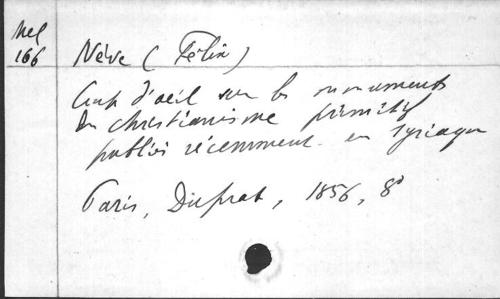 Mel
166
Nève (Félix)
Coup d'oeil sur les monuments
du christianisme primitif
publiés récemment en syriaque
Paris, Duprat, 1856, 8º